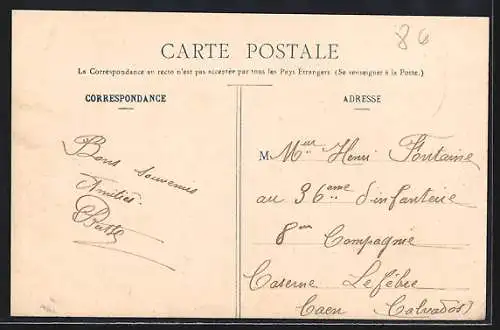 86
CARTE POSTALE
La Correspondance au recto n'est pas acceptée par tous les Pays Etrangers (Se renseigner à la Poste.)
CORRESPONDANCE
Bons souvenirs
Amitiés.
ADRESSE
M Mr Henri Fontaine
au 36ème d'infanterie
8me Compagnie
Caserne Lefébre
Caen (Calvados)